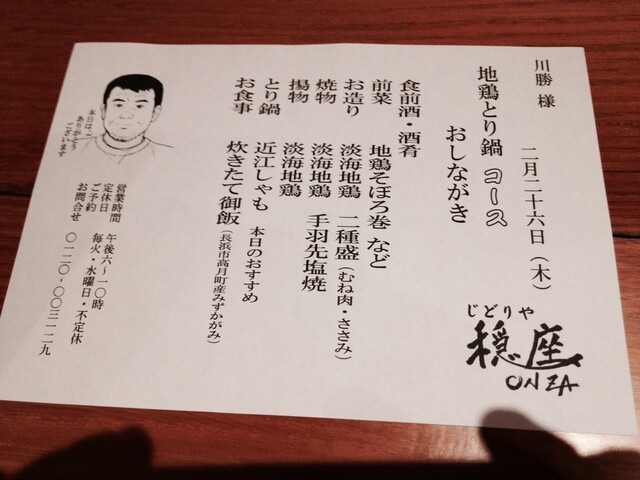 川勝 様　二月二十六日（木）
地鶏とり鍋 コース
おしながき
じどりや
穏座
ONZA
食前酒・酒肴
前菜　地鶏そぼろ巻 など
お造り　淡海地鶏　二種盛（むね肉・ささみ）
焼物　淡海地鶏　手羽先塩焼
揚物　淡海地鶏　本日のおすすめ
とり鍋　近江しゃも
お食事　炊きたて御飯（長浜市高月町産みずかがみ）
本日は、
ありがとう
ございます
営業時間　午後六～一〇時
定休日　毎火・水曜日・不定休
ご予約
お問合せ　〇一二〇-〇〇三一二九